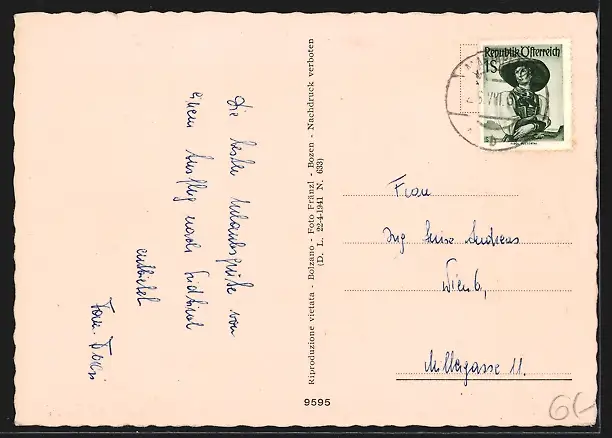 Die besten Urlaubsgrüße von
einem Ausflug nach Südtirol
entbietet
Fam.
Riproduzione vietata - Bolzano - Foto Fränzl - Bozen - Nachdruck verboten
(D. L. 22-4-1941 N. 633)
9595
Republik Österreich
1S
Frau
Ing Luise Andreas
Wien 6,
Millergasse 11.
6(-